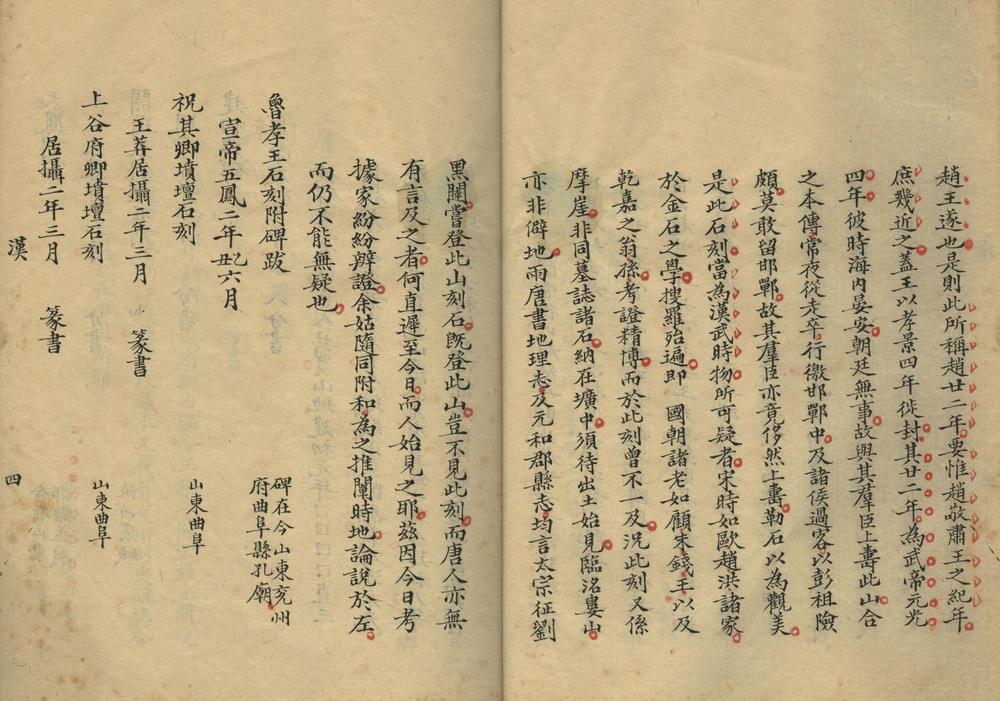 趙王遂也是則此所稱趙廿二年要惟趙敬肅王之紀年
庶幾近之蓋王以孝景四年徙封其廿二年為武帝元光
四年彼時海內晏安朝廷無事故與其羣臣上壽此山合
之本傳常夜從走卒行徼邯鄲中及諸侯過客以彭祖險
頗莫敢留邯鄲故其羣臣亦竟侈然上壽勒石以為觀美
是此石刻當為漢武時物所可疑者宋時如歐趙洪諸家
於金石之學搜羅殆遍即 國朝諸老如顧朱錢王以及
乾嘉之翁孫考證精博而於此刻曾不一及況此刻又係
摩崖非同墓誌諸石納在壙中須待出土始見臨洺婁山
亦非僻地兩唐書地理志及元和郡縣志均言太宗征劉
黑闥嘗登此山刻石既登此山豈不見此刻而唐人亦無
有言及之者何直遲至今日而人始見之耶茲因今日考
據家紛紛辨證余姑隨同附和為之推闡時地論說於左
而仍不能無疑也
魯孝王石刻附碑跋
碑在今山東兖州
府曲阜縣孔廟
宣帝五鳳二年 六月
祝其卿墳壇石刻
山東曲阜
王莽居攝二年三月 篆書
上谷府卿墳壇石刻
山東曲阜
居攝二年三月 篆書
漢
四